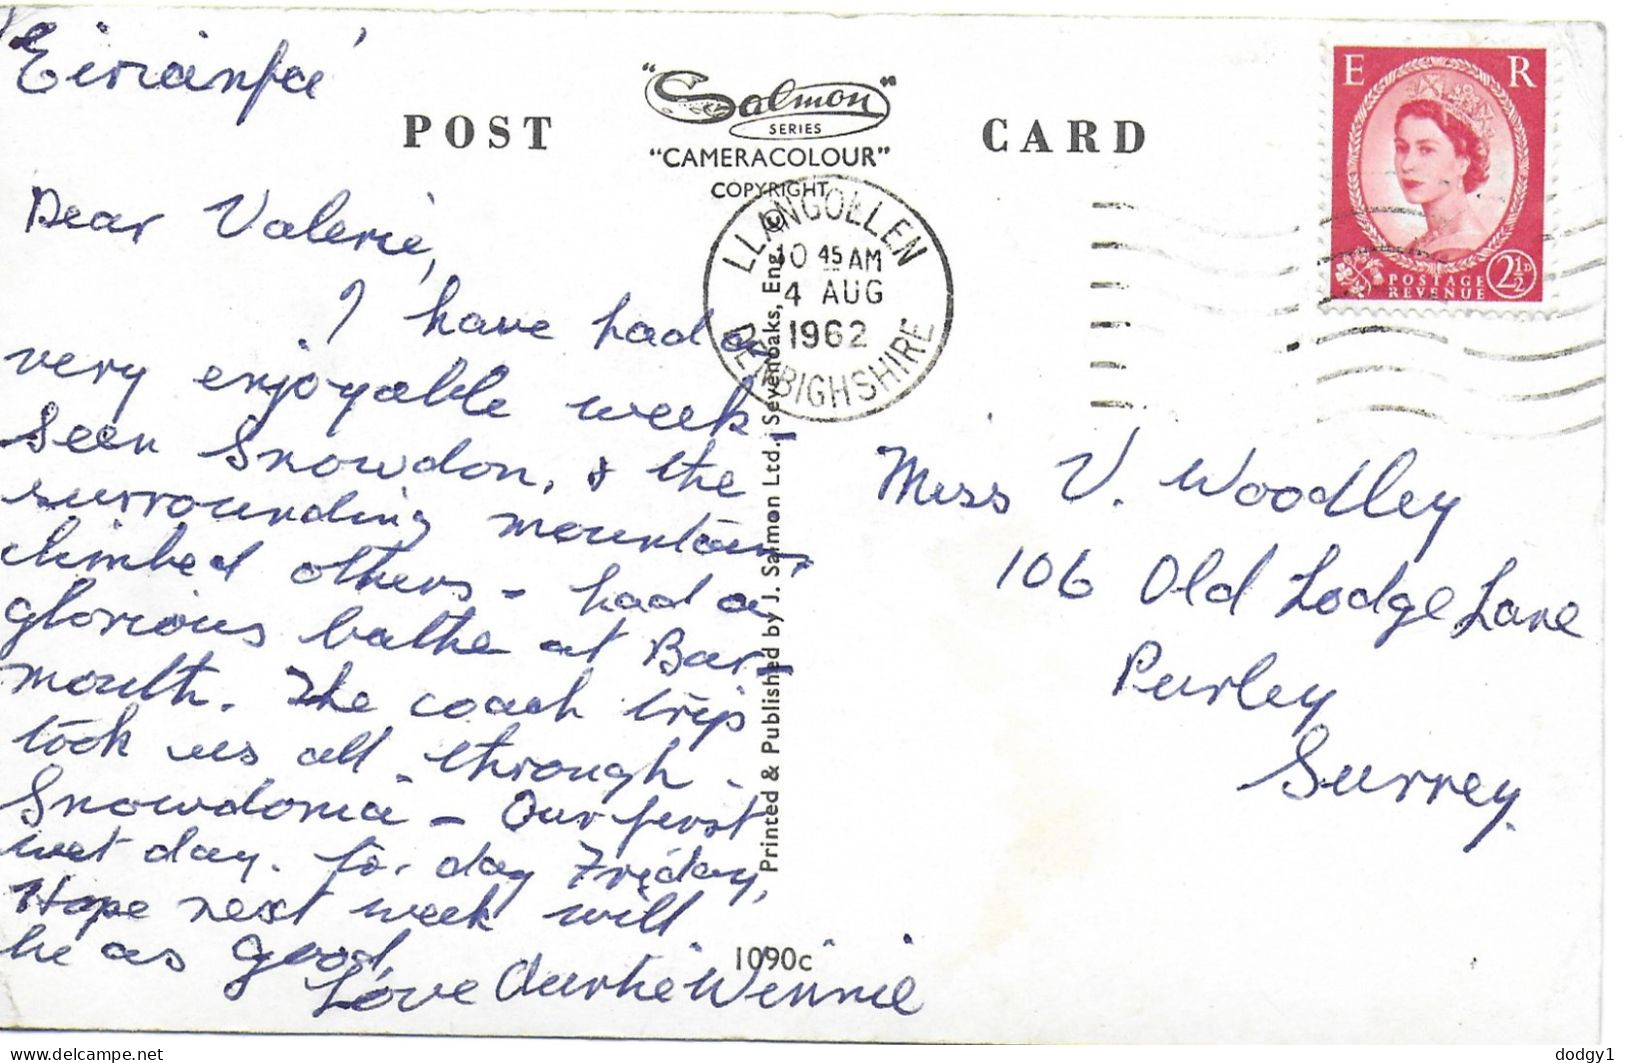 'Eirianfa'
POST CARD
"Salmon"
SERIES
"CAMERACOLOUR"
COPYRIGHT
©
LLANGOLLEN
10 45 AM
4 AUG
1962
DENBIGHSHIRE
E R
POSTAGE
REVENUE
2½D
Dear Valerie,
I have had a
very enjoyable week -
Seen Snowdon, & the
surrounding mountains,
climbed others - had a
glorious bathe at Bar-
mouth. The coach trip
took us all - through -
Snowdonia - Our first
wet day. to-day Friday,
Hope next week will
be as good,
Love Auntie Winnie
Printed & Published by J. Salmon Ltd., Sevenoaks, Eng.
1090c
Miss V. Woodley
106 Old Lodge Lane
Purley
Surrey.
delcampe.net
dodgy1